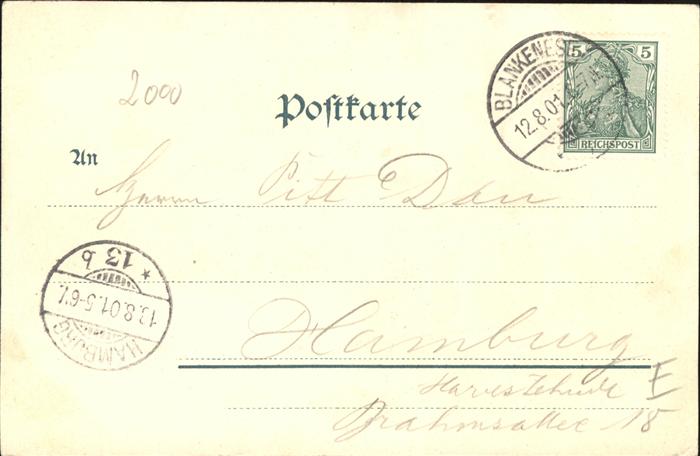 5 5
REICHSPOST
BLANKENESE
12.8.01.
2000
Postkarte
An
Herrn Pitt Dau
* 13 b
13.8.01.5-6V.
HAMBURG
Hamburg
Harvestehude E
Brahmsallee 18